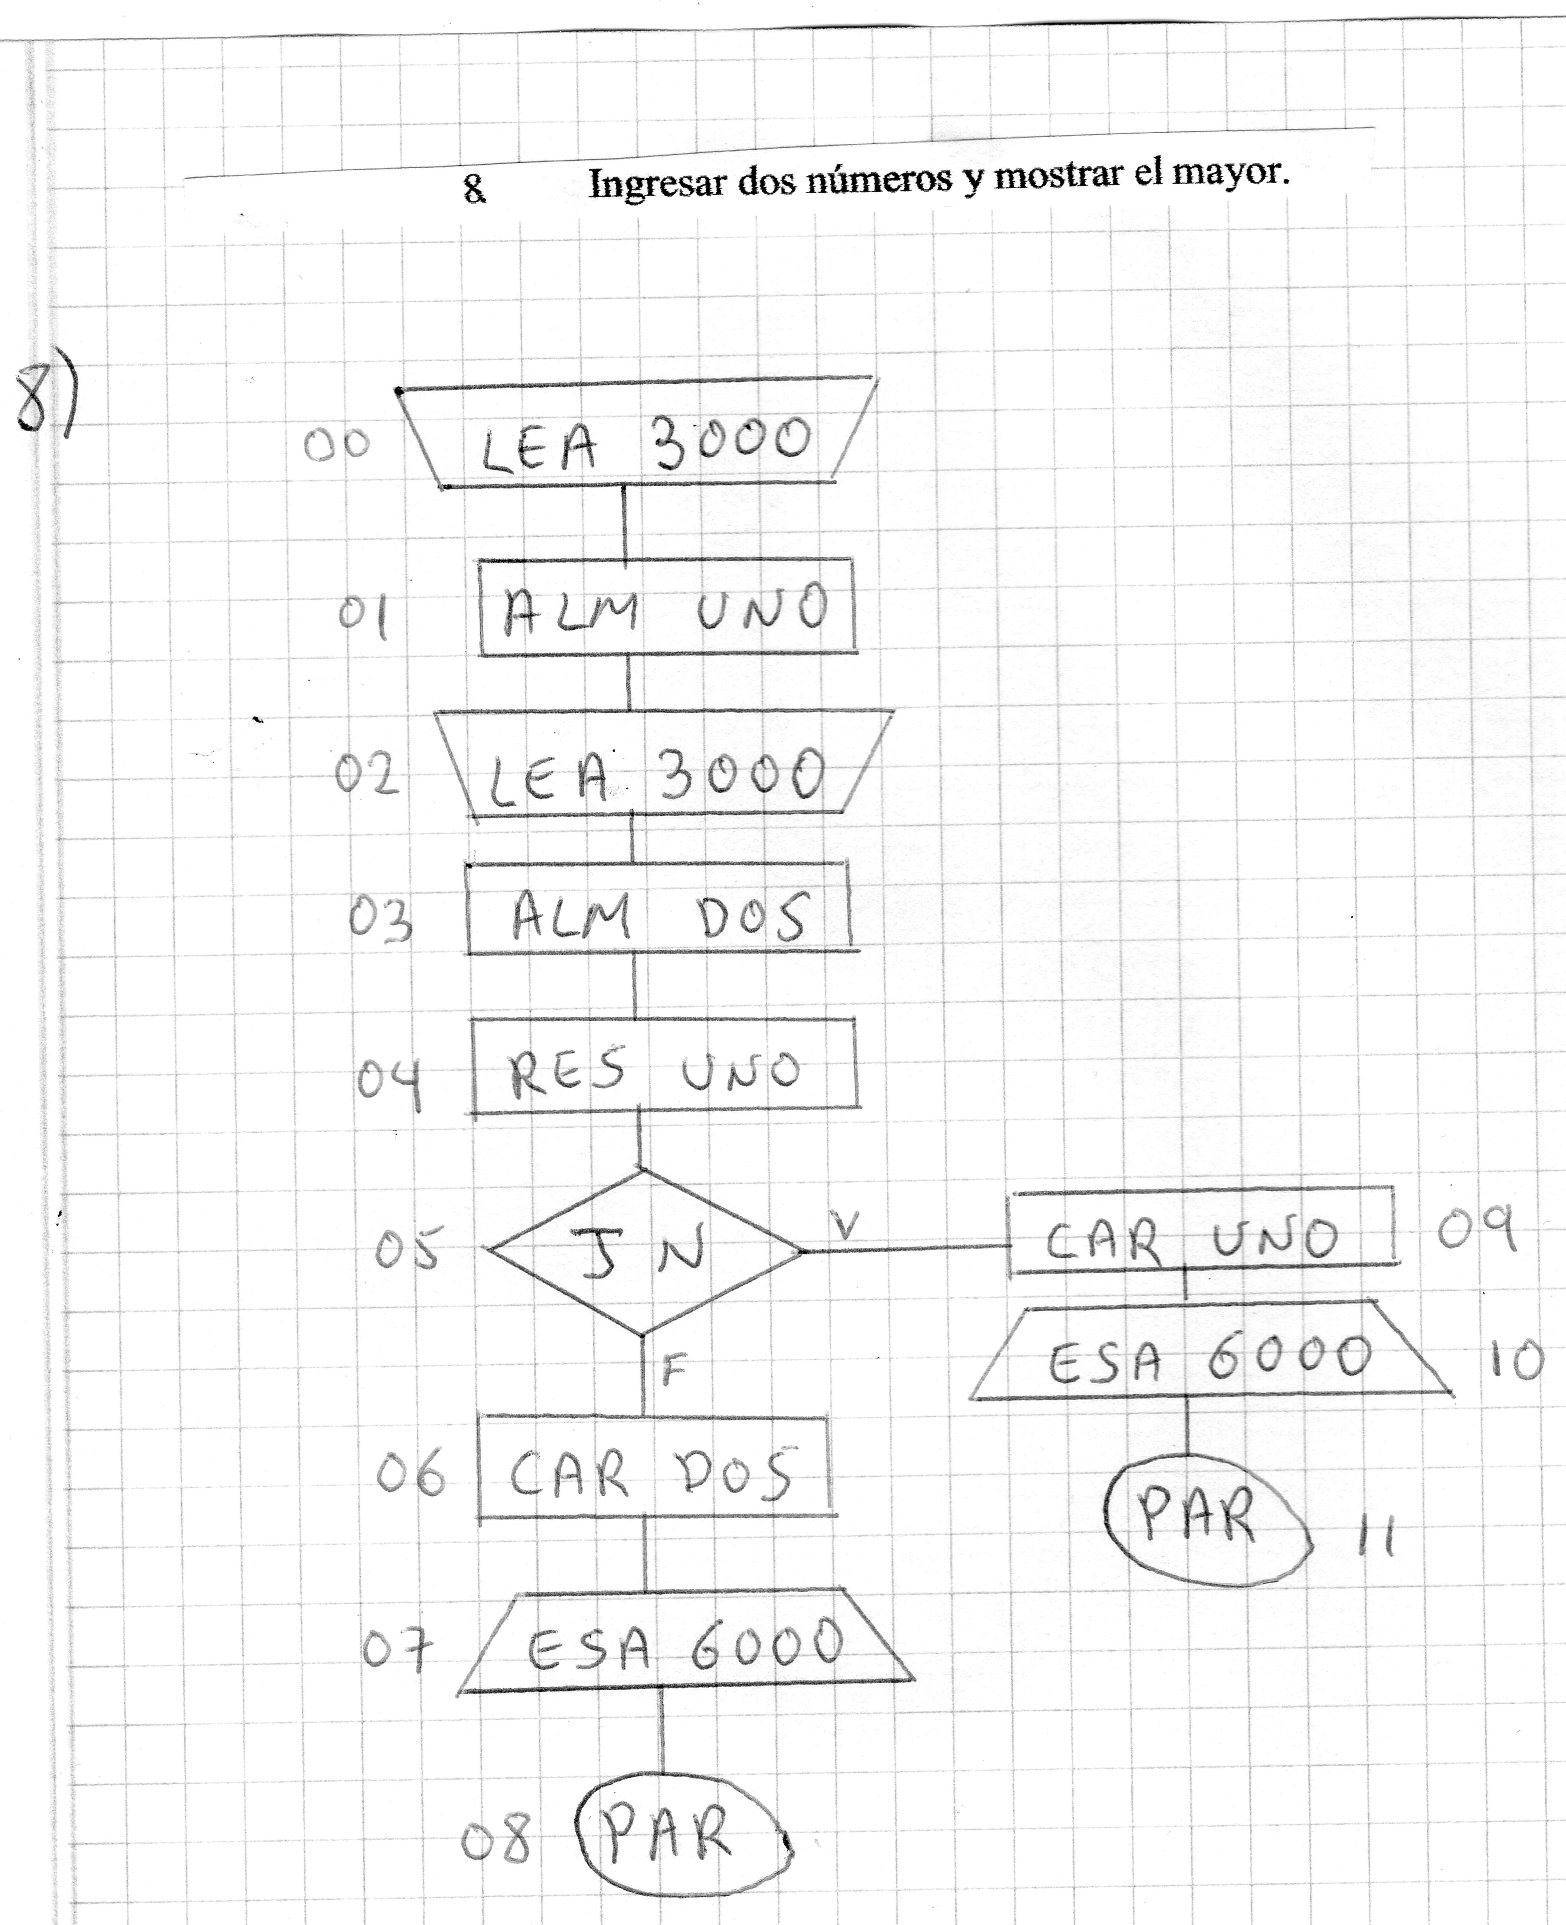 8 Ingresar dos números y mostrar el mayor.
8)
00 LEA 3000
01 ALM UNO
02 LEA 3000
03 ALM DOS
04 RES UNO
05 JN V CAR UNO 09
ESA 6000 10
F
06 CAR DOS
PAR 11
07 ESA 6000
08 PAR